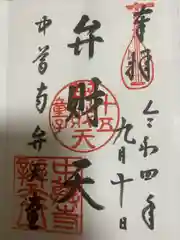 奉拝
令和四年
九月十日
弁財天
中尊寺弁天堂
十五童子
弁財天